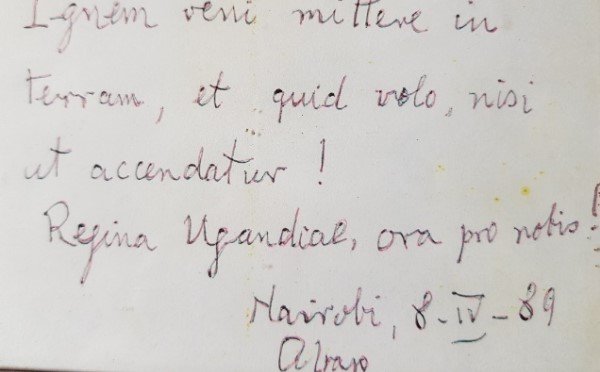 Ignem veni mittere in
terram, et quid volo, nisi
ut accendatur !
Regina Ugandiae, ora pro nobis!
Nairobi, 8-IV-89